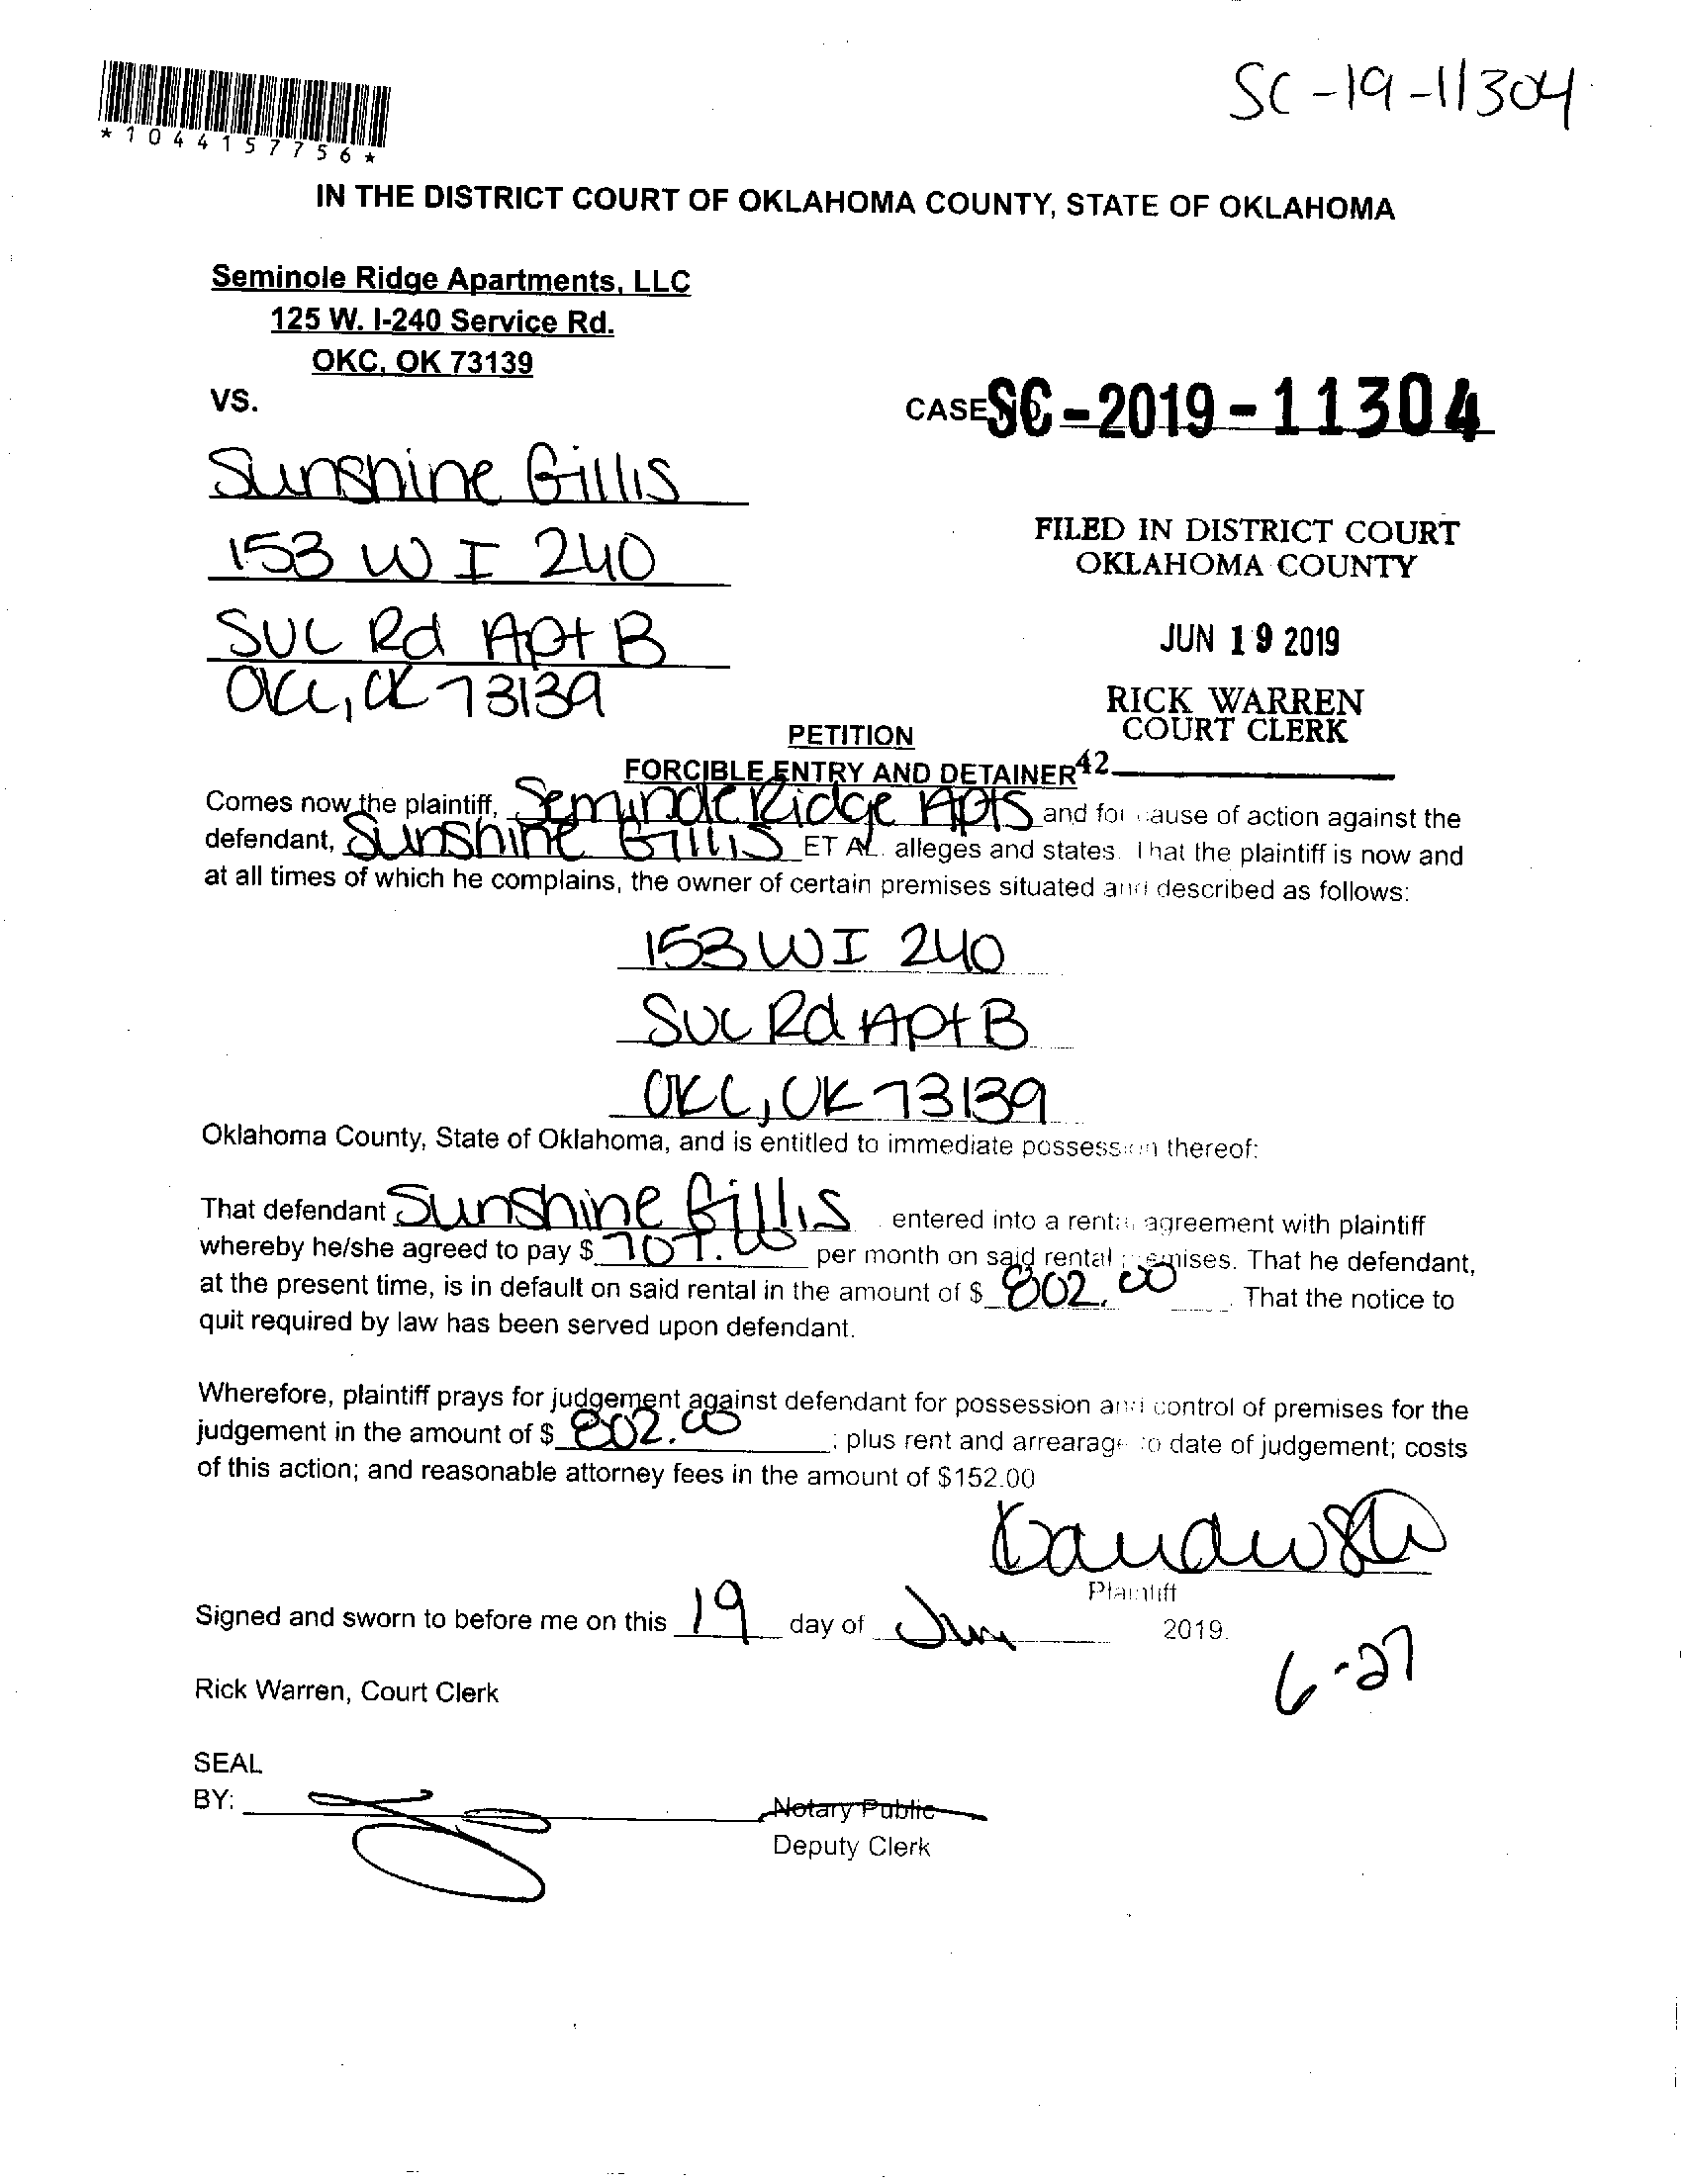 SC-19-11304
*1044157756*
IN THE DISTRICT COURT OF OKLAHOMA COUNTY, STATE OF OKLAHOMA
Seminole Ridge Apartments, LLC
125 W. I-240 Service Rd.
OKC, OK 73139
VS.
CASE SC-2019-11304
Sunshine Gillis
153 W I 240
SVC Rd Apt B
OKC, OK 73139
FILED IN DISTRICT COURT
OKLAHOMA COUNTY
JUN 19 2019
RICK WARREN
COURT CLERK
42
PETITION
FORCIBLE ENTRY AND DETAINER
Comes now the plaintiff, Seminole Ridge Apts and for cause of action against the
defendant, Sunshine Gillis ET AL. alleges and states. That the plaintiff is now and
at all times of which he complains, the owner of certain premises situated and described as follows:
153 W I 240
SVC Rd Apt B
OKC, OK 73139
Oklahoma County, State of Oklahoma, and is entitled to immediate possession thereof:
That defendant Sunshine Gillis entered into a rental agreement with plaintiff
whereby he/she agreed to pay $ 707.00 per month on said rental premises. That he defendant,
at the present time, is in default on said rental in the amount of $ 802.00. That the notice to
quit required by law has been served upon defendant.
Wherefore, plaintiff prays for judgement against defendant for possession and control of premises for the
judgement in the amount of $ 802.00; plus rent and arrearage to date of judgement; costs
of this action; and reasonable attorney fees in the amount of $152.00
Plaintiff
Signed and sworn to before me on this 19 day of Jun 2019.
6-27
Rick Warren, Court Clerk
SEAL
BY:
Notary Public
Deputy Clerk